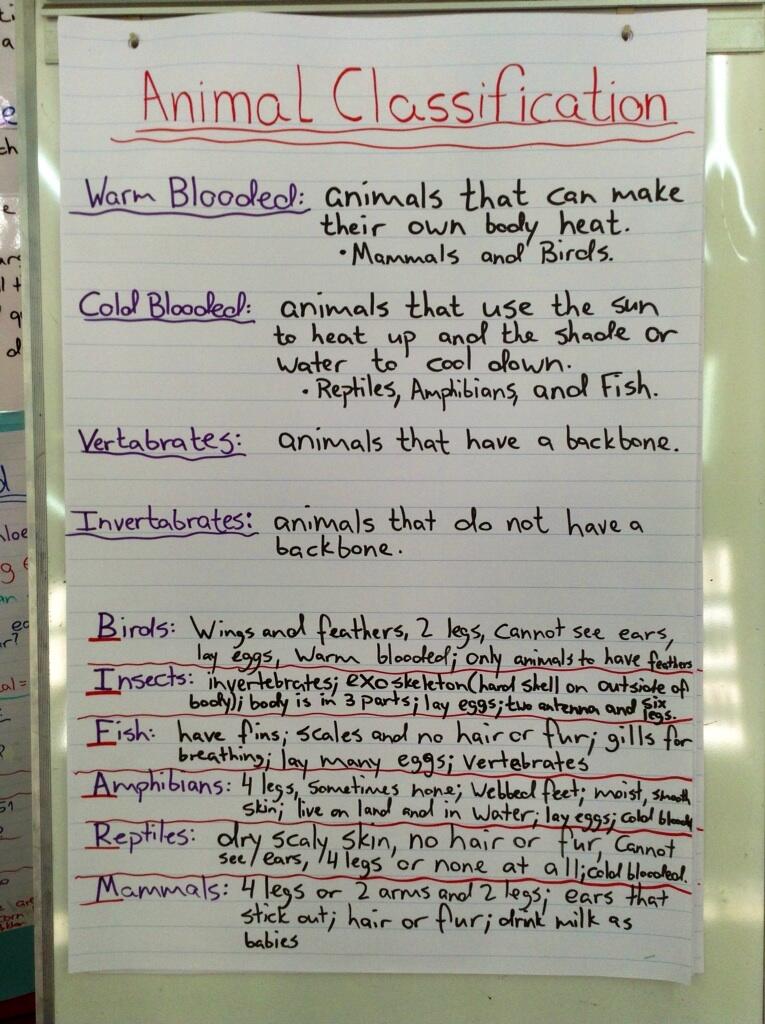 Animal Classification
Warm Blooded: animals that can make
their own body heat.
• Mammals and Birds.
Cold Blooded: animals that use the sun
to heat up and the shade or
water to cool down.
• Reptiles, Amphibians, and Fish.
Vertabrates: animals that have a backbone.
Invertabrates: animals that do not have a
backbone.
Birds: Wings and feathers, 2 legs, Cannot see ears,
lay eggs, warm blooded; only animals to have feathers
Insects: invertebrates; exoskeleton (hard shell on outside of
body); body is in 3 parts; lay eggs; two antenna and six
legs.
Fish: have fins; scales and no hair or fur; gills for
breathing; lay many eggs; vertebrates
Amphibians: 4 legs, sometimes none; Webbed feet; moist, smooth
skin; live on land and in water; lay eggs; cold blooded
Reptiles: dry scaly skin, no hair or fur, Cannot
see ears, 4 legs or none at all; cold blooded.
Mammals: 4 legs or 2 arms and 2 legs; ears that
stick out; hair or fur; drink milk as
babies